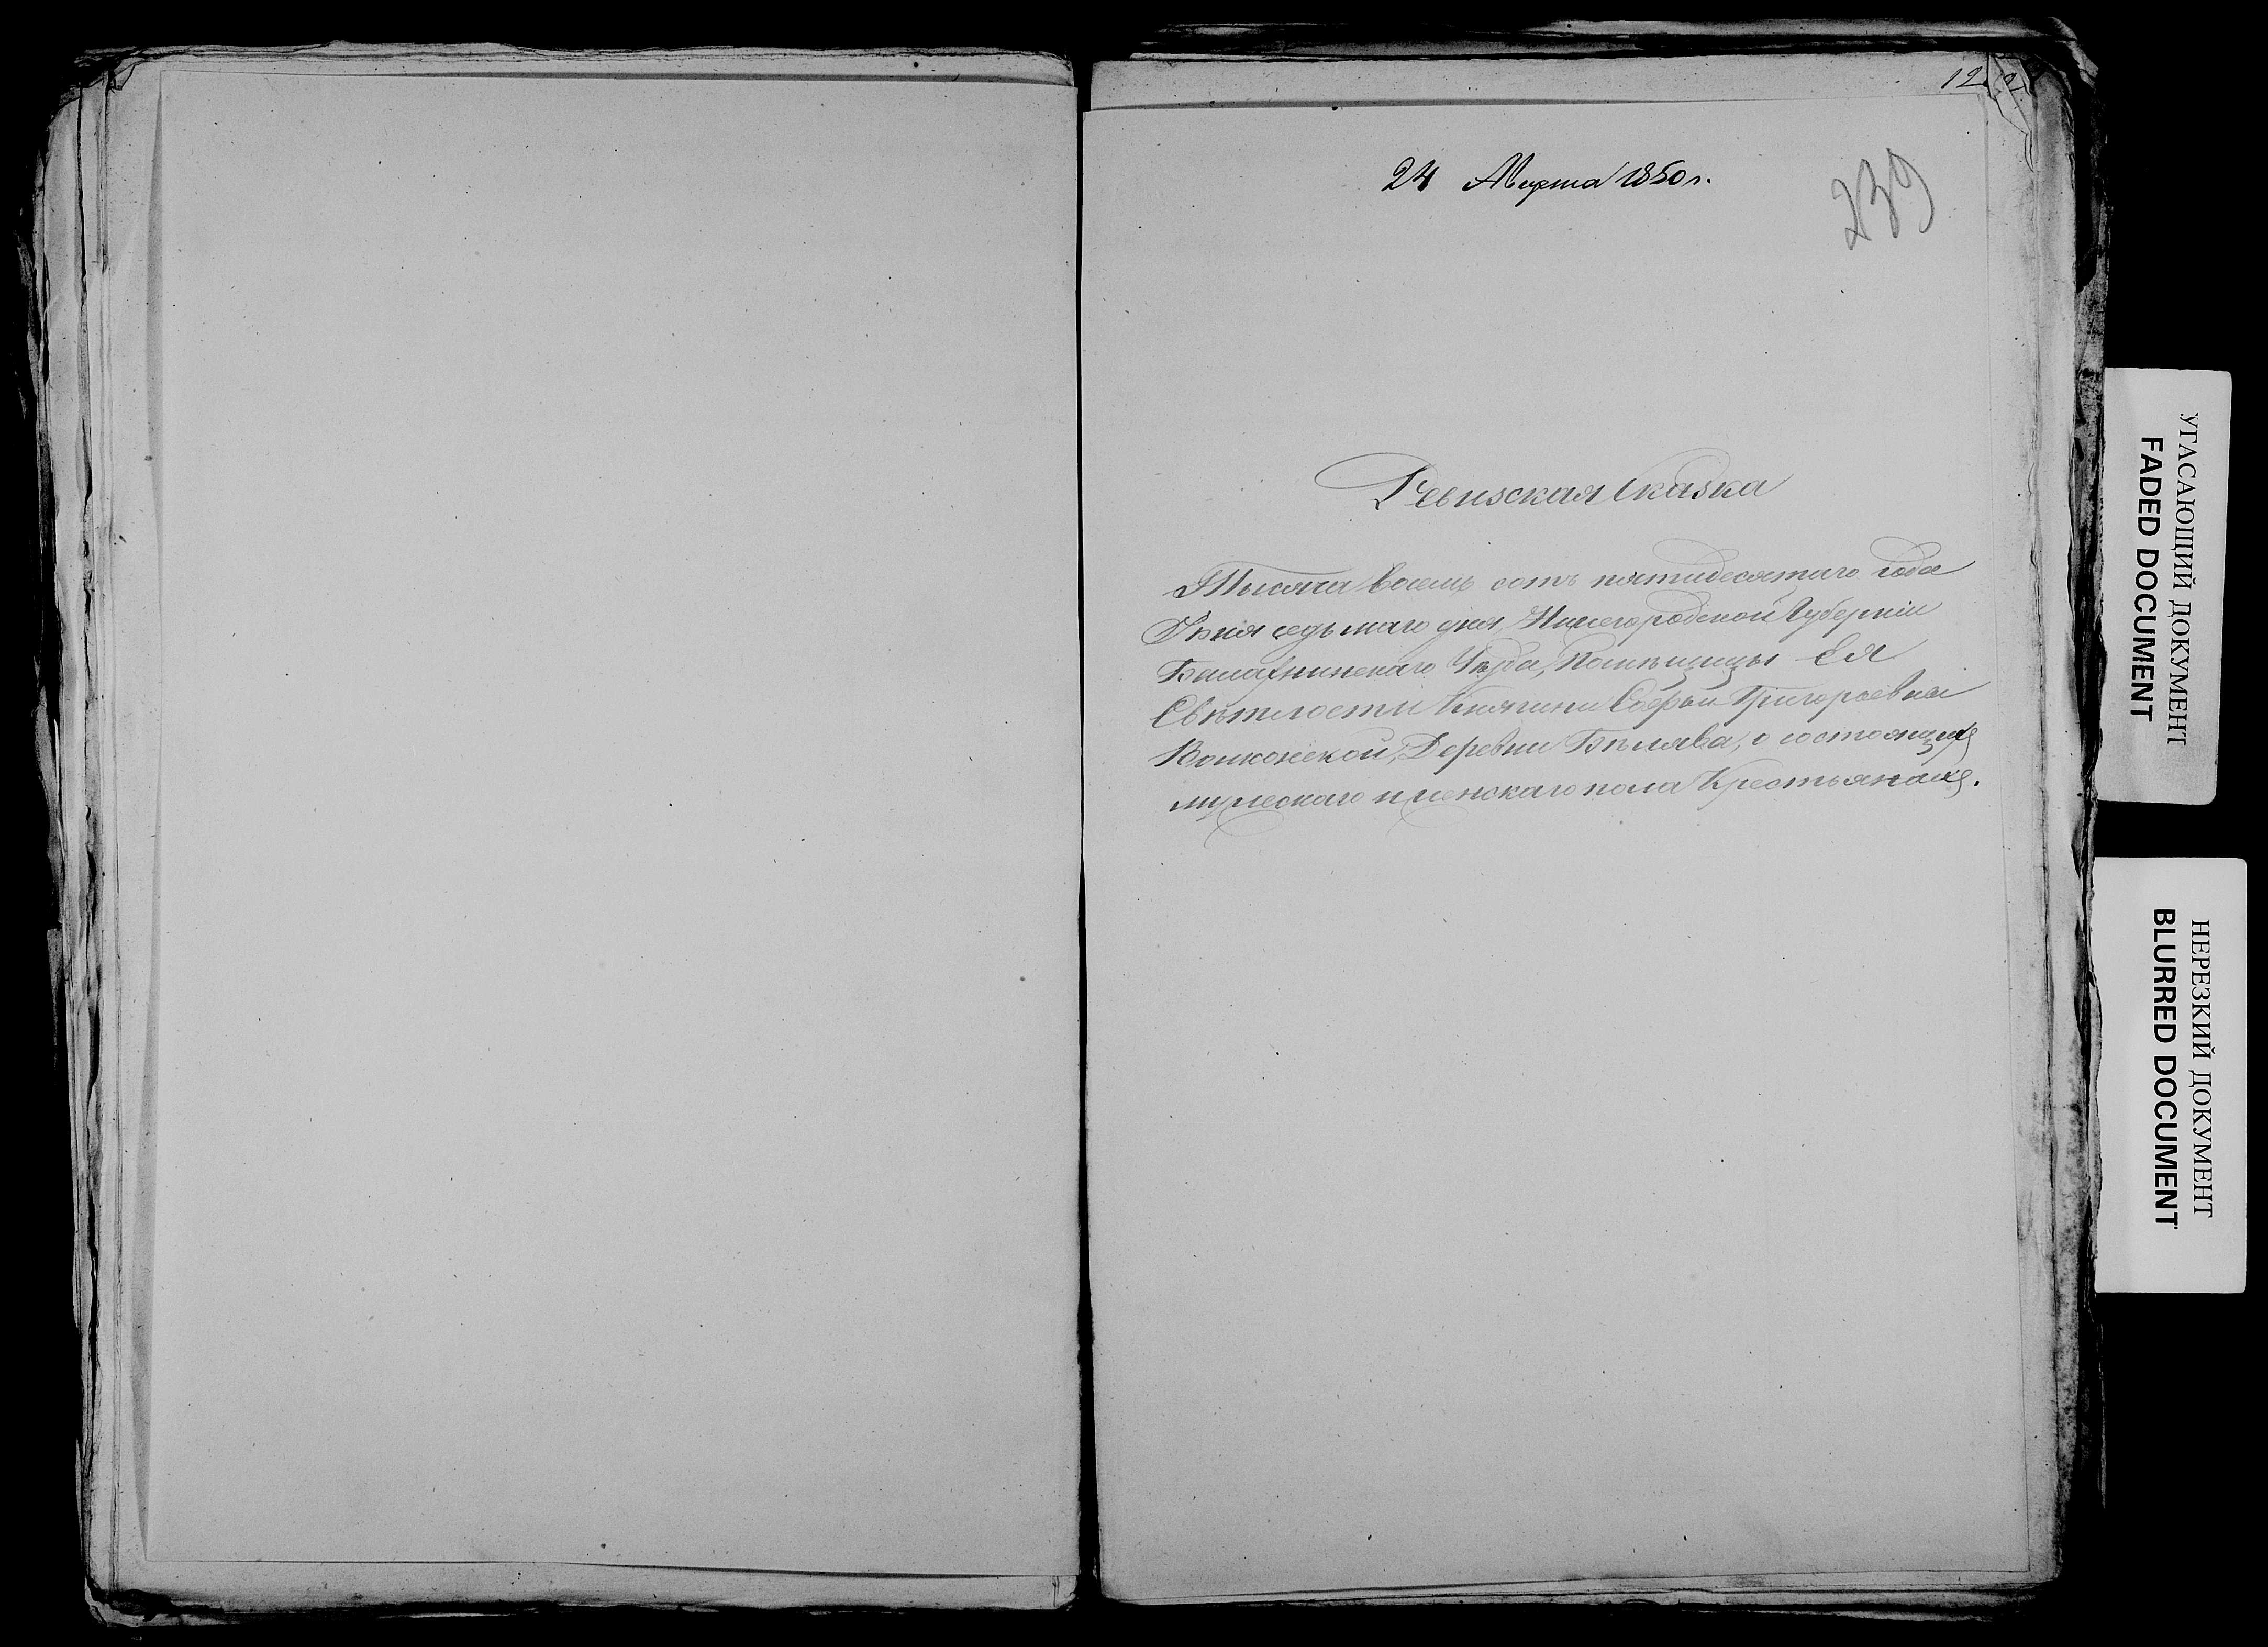 24 Марта 1850 г.
239
Ревизская Сказка
Тысяча восемь сотъ пятидесятаго года
седьмаго дня, Нижегородской Губерніи
Балахнинскаго Уѣзда, Помѣщицы Ея
Свѣтлости Княгини Софьи Григорьевны
Волконской, Деревни Бѣляева, о состоящихъ
мужескаго и женскаго пола Крестьянахъ.
УГАСАЮЩИЙ ДОКУМЕНТ
FADED DOCUMENT
НЕРЕЗКИЙ ДОКУМЕНТ
BLURRED DOCUMENT